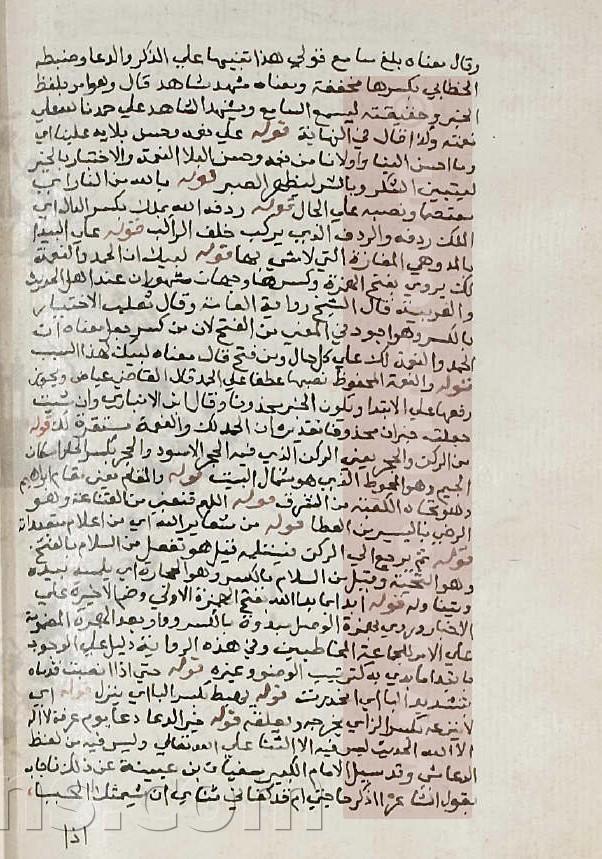 وقال معناه بلغ سامع قولي هذا تنبيها علي الذكر والدعا وضبطه
الخطابي بكسرها مخففة ومعناه شهد شاهد قال وهو امر بلفظ
الخبر وحقيقته ليسمع السامع ويشهد الشاهد علي حمدنا لله علي
نعمته ولذا قال في النهاية قوله علي نعمه وحسن بلايه علينا اي
وما احسن الينا واولانا من نعمه وحسن البلا النعمة والاختبار بالخير
ليتبين الشكر وبالشر ليظهر الصبر قوله بالله من النار اي
معتصما ونصبه علي الحال قوله ردفه الله بملك بكسر الدال اي
الملك ردفه والردف الذي يركب خلف الراكب قوله علي البيدا
بالمد وهي المفازة التي لا شي بها قوله لبيك ان الحمد والنعمة
لك يروي بفتح الهمزة وكسرها وجهان مشهوران عند اهل الحديث
والعربية قال الشيخ رواية العامة وقال ثعلب الاختيار
بالكسر وهو اجود في المعني من الفتح لان من كسر جعل معناه ان
الحمد والنعمة لك علي كل حال ومن فتح قال معناه لبيك لهذا السبب
قوله والنعمة المحفوظ نصبها عطفا علي الحمد قال القاضي عياض ويجوز
رفعها علي الابتدا ويكون الخبر محذوفا وقال ابن الانباري وان شيت
جعلت خبر ان محذوفا تقديره ان الحمد لك والنعمة مستقرة لك قوله
من الركن والحجر يعني الركن الذي فيه الحجر الاسود والحجر بكسر الحا واسكان
الجيم وهو المحوط الذي هو شمال البيت قوله والمقام يعني مقام ابراهيم
وهو تجاه الكعبة من الشرق قوله اللهم قنعني من القناعة وهو
الرضي باليسير من العطا قوله من شعاير الله اي من اعلام متعبداته
قوله ثم يرجع الي الركن فيستلمه قيل هو تفعل من السلام بالفتح
وهو التحية وقيل من السلام بالكسر وهو الحجارة اي يلمسه بيده
ويتناوله قوله ابدا بما بدا الله بفتح الهمزة الاولي وضم الاخيرة علي
الاخبار وروي بهمزة الوصل مبدوة بالكسر وواو بعد الهمزة المضمومة
علي الامر للجماعة المخاطبين وفي هذه الرواية دليل علي الوجوب
فابتدا ما بدي به كترتيب الوضو وغيره قوله حتي اذا انصبت قدماه
بتشديد البا اي انحدرت قوله يهبط بكسر البا اي ينزل قوله اي
لا تنزعه بكسر الزاي يخرجه ويعلقه قوله خير الدعا دعا يوم عرفة لا اله
الا الله الحديث ليس فيه الا الثنا علي الله تعالي وليس فيه من لفظ
الدعا شي وقد سيل الامام الكبير سفيان بن عيينة عن ذلك فاجاب
بقول الشاعر ااذكر حاجتي ام قد كفاني ثناي ان شيمتك الحباء
اذا